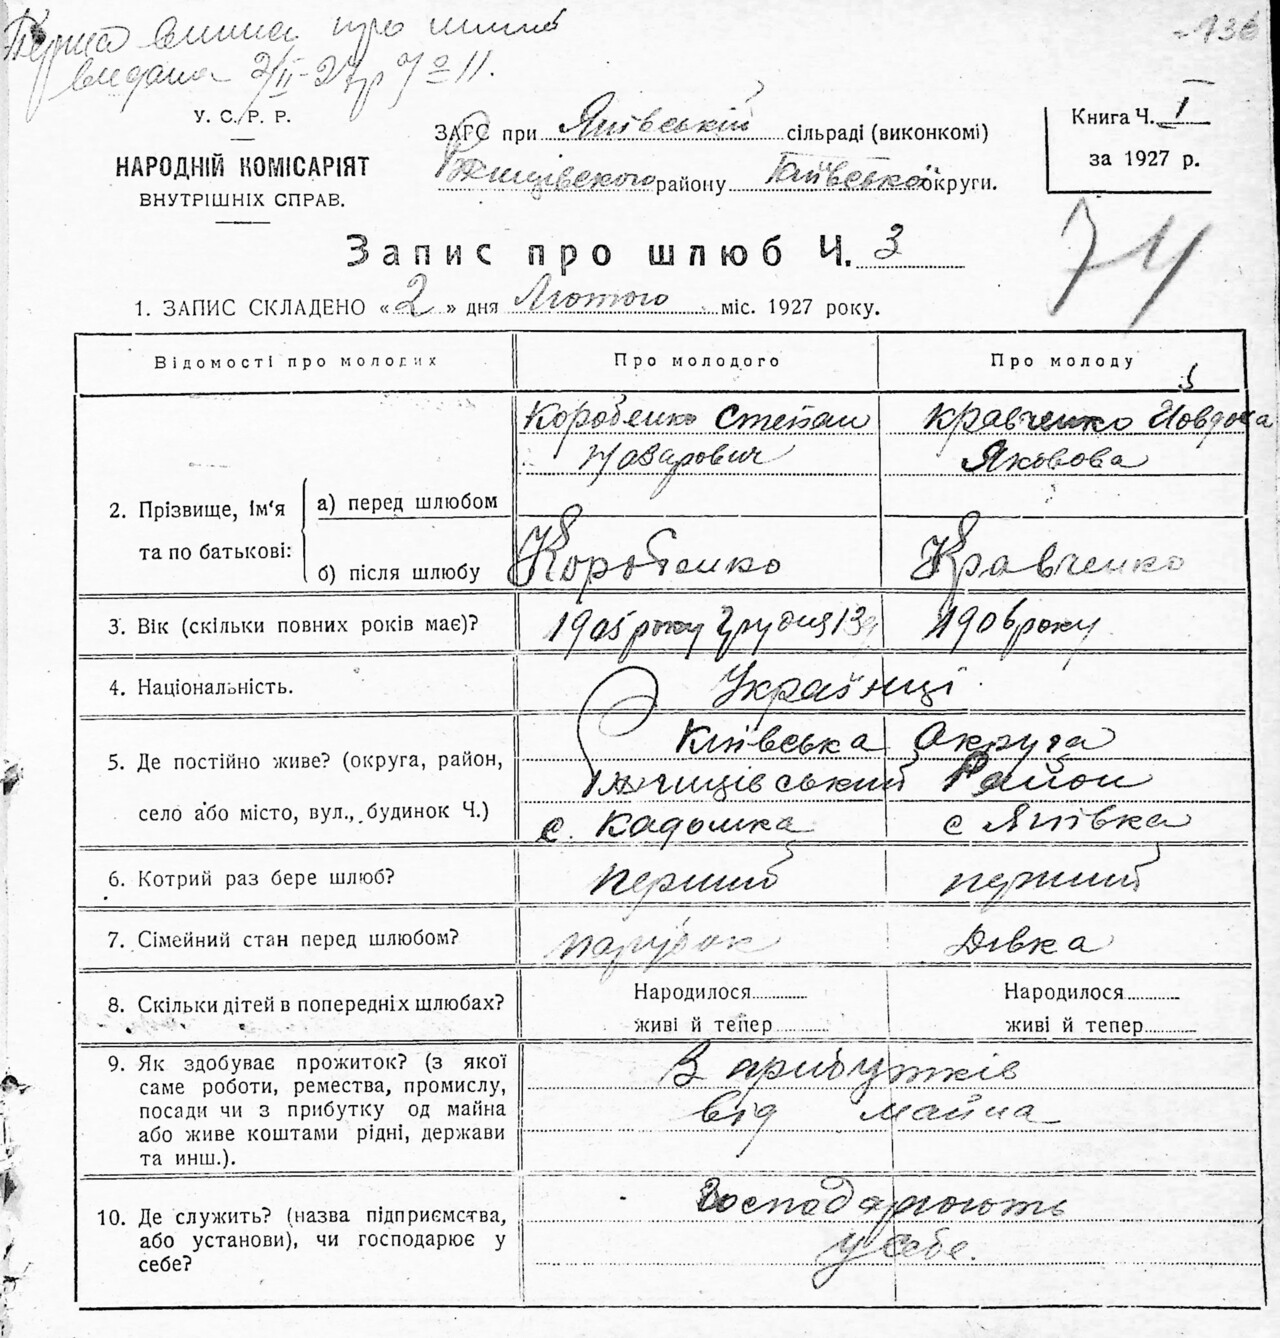 видана 2/II-27р № 11.
136
У. С. Р. Р.
НАРОДНІЙ КОМІСАРІЯТ
ВНУТРІШНІХ СПРАВ.
ЗАГС при Янівській сільраді (виконкомі)
Ржищівского району Київської округи.
Книга Ч. I
за 1927 р.
74
Запис про шлюб Ч. 3
1. ЗАПИС СКЛАДЕНО «2» дня Лютого міс. 1927 року.
Відомості про молодих
Про молодого
Про молоду
2. Прізвище, Ім'я та по батькові:
а) перед шлюбом
Коробенко Степан
Кравченко Йовдоха
Яковова
б) після шлюбу
Коробенко
Кравченко
3. Вік (скільки повних років має)?
1905 року Грудня 13
1906 року
4. Національність.
Українці
5. Де постійно живе? (округа, район,
село або місто, вул., будинок Ч.)
Київська Округа
Ржищівський Район
с. Кадомка
с Янівка
6. Котрий раз бере шлюб?
перший
перший
7. Сімейний стан перед шлюбом?
парубок
Дівка
8. Скільки дітей в попередніх шлюбах?
Народилося
живі й тепер
Народилося
живі й тепер
9. Як здобуває прожиток? (з якої
саме роботи, ремества, промислу,
посади чи з прибутку од майна
або живе коштами рідні, держави
та инш.).
З прибутків
від майна
10. Де служить? (назва підприємства,
або установи), чи господарює у
себе?
Господарюють
у себе.